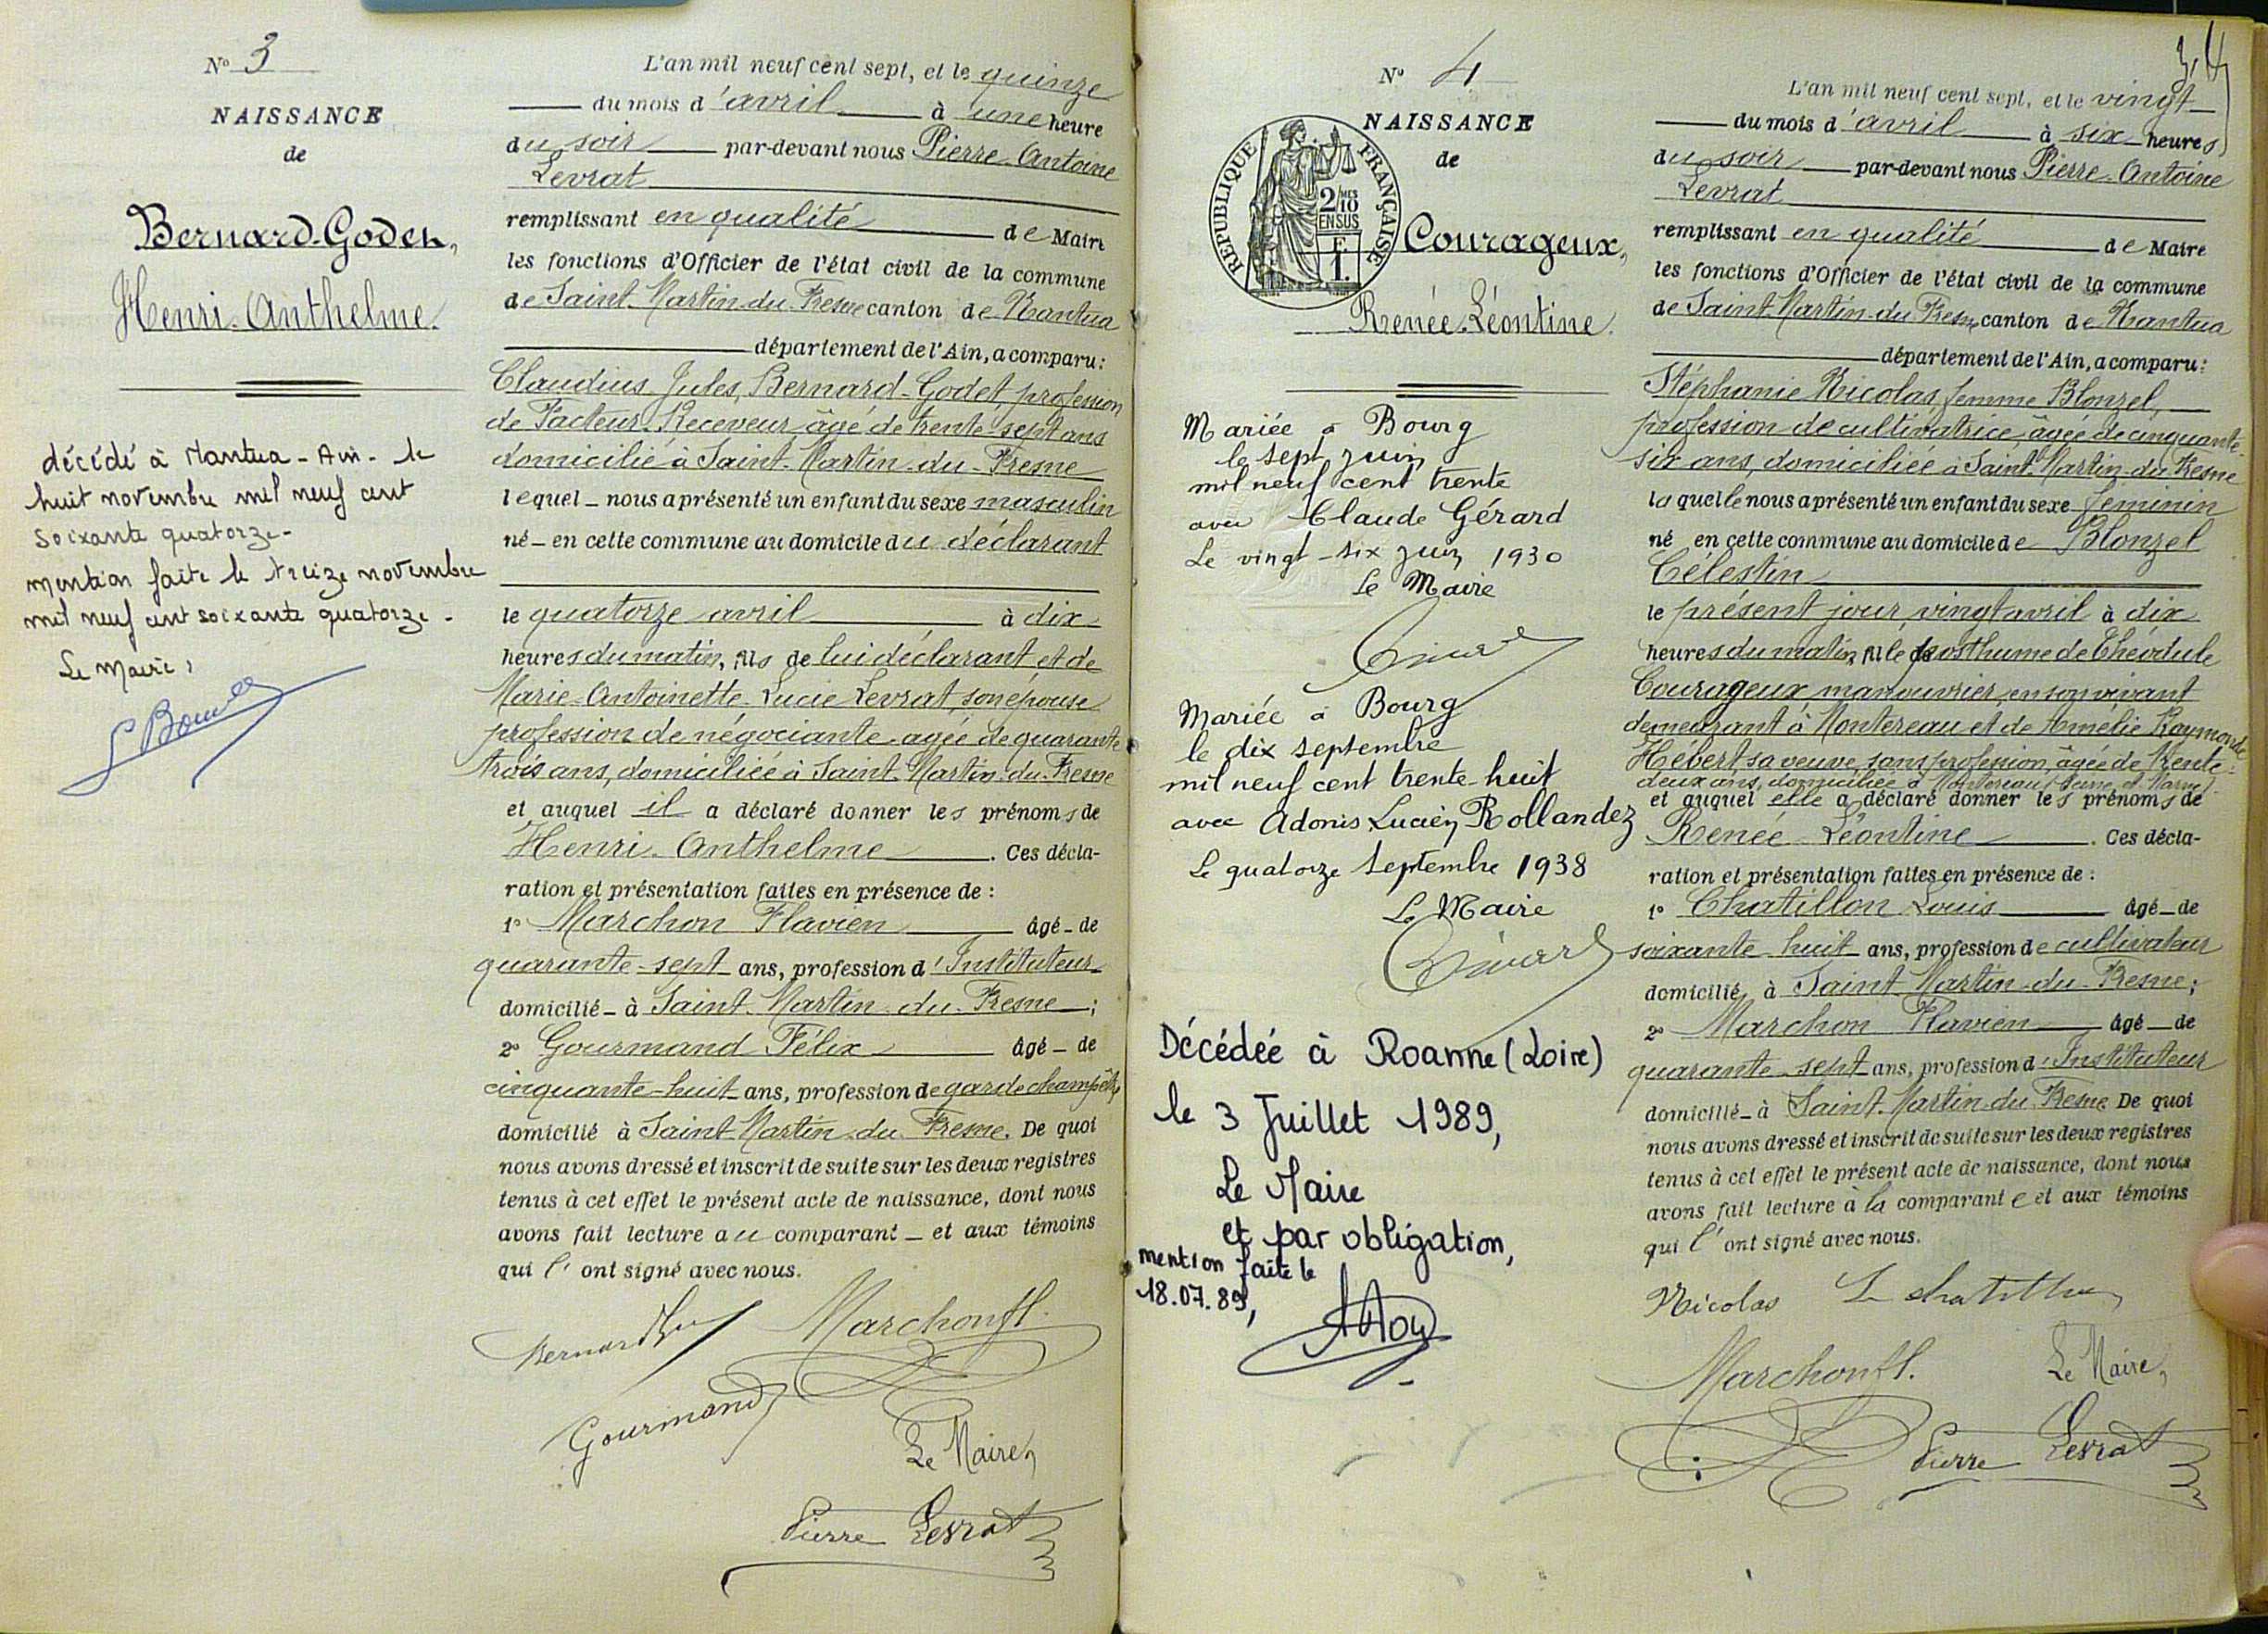 N° 3
NAISSANCE
de
Bernard-Godet,
Henri-Anthelme.
décédé à Nantua - Ain - le
huit novembre mil neuf cent
soixante quatorze -
mention faite le treize novembre
mil neuf cent soixante quatorze -
Le Maire,
L'an mil neuf cent sept, et le quinze
du mois d'avril à une heure
du soir par-devant nous Pierre-Antoine
Levrat
remplissant en qualité de Maire
les fonctions d'Officier de l'état civil de la commune
de Saint-Martin-du-Fresne canton de Nantua
département de l'Ain, a comparu:
Claudius-Jules, Bernard-Godet, profession
de Facteur-Receveur âgé de trente-sept ans
domicilié à Saint-Martin-du-Fresne
lequel nous a présenté un enfant du sexe masculin
né en cette commune au domicile du déclarant
le quatorze avril à dix
heures du matin, fils de lui déclarant et de
Marie-Antoinette-Lucie Levrat, son épouse
profession de négociante âgée de quarante
trois ans, domiciliée à Saint-Martin-du-Fresne
et auquel il a déclaré donner les prénoms de
Henri-Anthelme. Ces décla-
ration et présentation faites en présence de :
1° Marchon Flavien âgé de
quarante-sept ans, profession d'Instituteur
domicilié à Saint-Martin-du-Fresne;
2° Gourmand Félix âgé de
cinquante-huit ans, profession de garde champêtre
domicilié à Saint-Martin-du-Fresne. De quoi
nous avons dressé et inscrit de suite sur les deux registres
tenus à cet effet le présent acte de naissance, dont nous
avons fait lecture au comparant et aux témoins
qui l'ont signé avec nous.
Marchon fl.
Gourmand
Le Maire,
Pierre Levrat
N° 4
NAISSANCE
de
RÉPUBLIQUE FRANÇAISE
2/10 MES
EN SUS
Courageux,
Renée-Léontine.
Mariée à Bourg
le sept juin
mil neuf cent trente
avec Claude Gérard
Le vingt-six juin 1930
Le Maire
Mariée à Bourg
le dix septembre
mil neuf cent trente-huit
avec Adonis Lucien Rollandez
Le quatorze septembre 1938
Le Maire
Décédée à Roanne (Loire)
le 3 Juillet 1989,
Le Maire
et par obligation,
mention faite le
18.07.89,
L'an mil neuf cent sept, et le vingt
du mois d'avril à six heures
du soir par-devant nous Pierre-Antoine
Levrat
remplissant en qualité de Maire
les fonctions d'Officier de l'état civil de la commune
de Saint-Martin-du-Fresne canton de Nantua
département de l'Ain, a comparu:
Stéphanie Nicolas, femme Blonzel,
profession de cultivatrice, âgée de cinquante-
six ans, domiciliée à Saint-Martin-du-Fresne
laquelle nous a présenté un enfant du sexe féminin
né en cette commune au domicile de Blonzel
Célestin
le présent jour, vingt avril à dix
heures du matin, fille posthume de Théodule
Courageux, manouvrier, en son vivant
demeurant à Montereau et de Amélie Raymonde
Hébert sa veuve, sans profession, âgée de trente-
deux ans, domiciliée à Montereau (Seine et Marne)
et auquel elle a déclaré donner les prénoms de
Renée-Léontine. Ces décla-
ration et présentation faites en présence de :
1° Chatillon Louis âgé de
soixante-huit ans, profession de cultivateur
domicilié à Saint-Martin-du-Fresne;
2° Marchon Flavien âgé de
quarante-sept ans, profession d'Instituteur
domicilié à Saint-Martin-du-Fresne De quoi
nous avons dressé et inscrit de suite sur les deux registres
tenus à cet effet le présent acte de naissance, dont nous
avons fait lecture à la comparante et aux témoins
qui l'ont signé avec nous.
Nicolas L chatillon
Marchon fl.
Le Maire,
Pierre Levrat